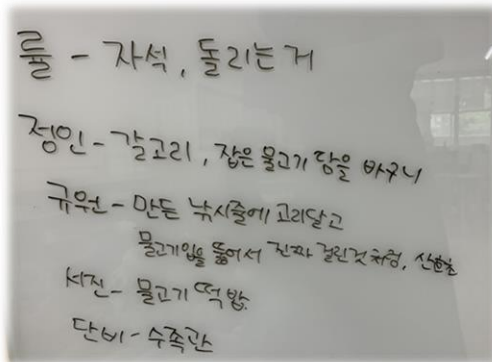 룰 - 자석, 돌리는 거
정인 - 갈고리, 잡은 물고기 담을 바구니
규원 - 만든 낚시줄에 고리달고
물고기입을 뚫어서 진짜 걸린것 처럼,
서진 - 물고기 떡밥
단비 - 수족관